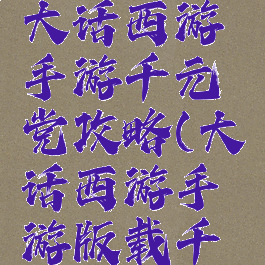 大话西游
手游千元
党攻略(大
话西游手
游版载千